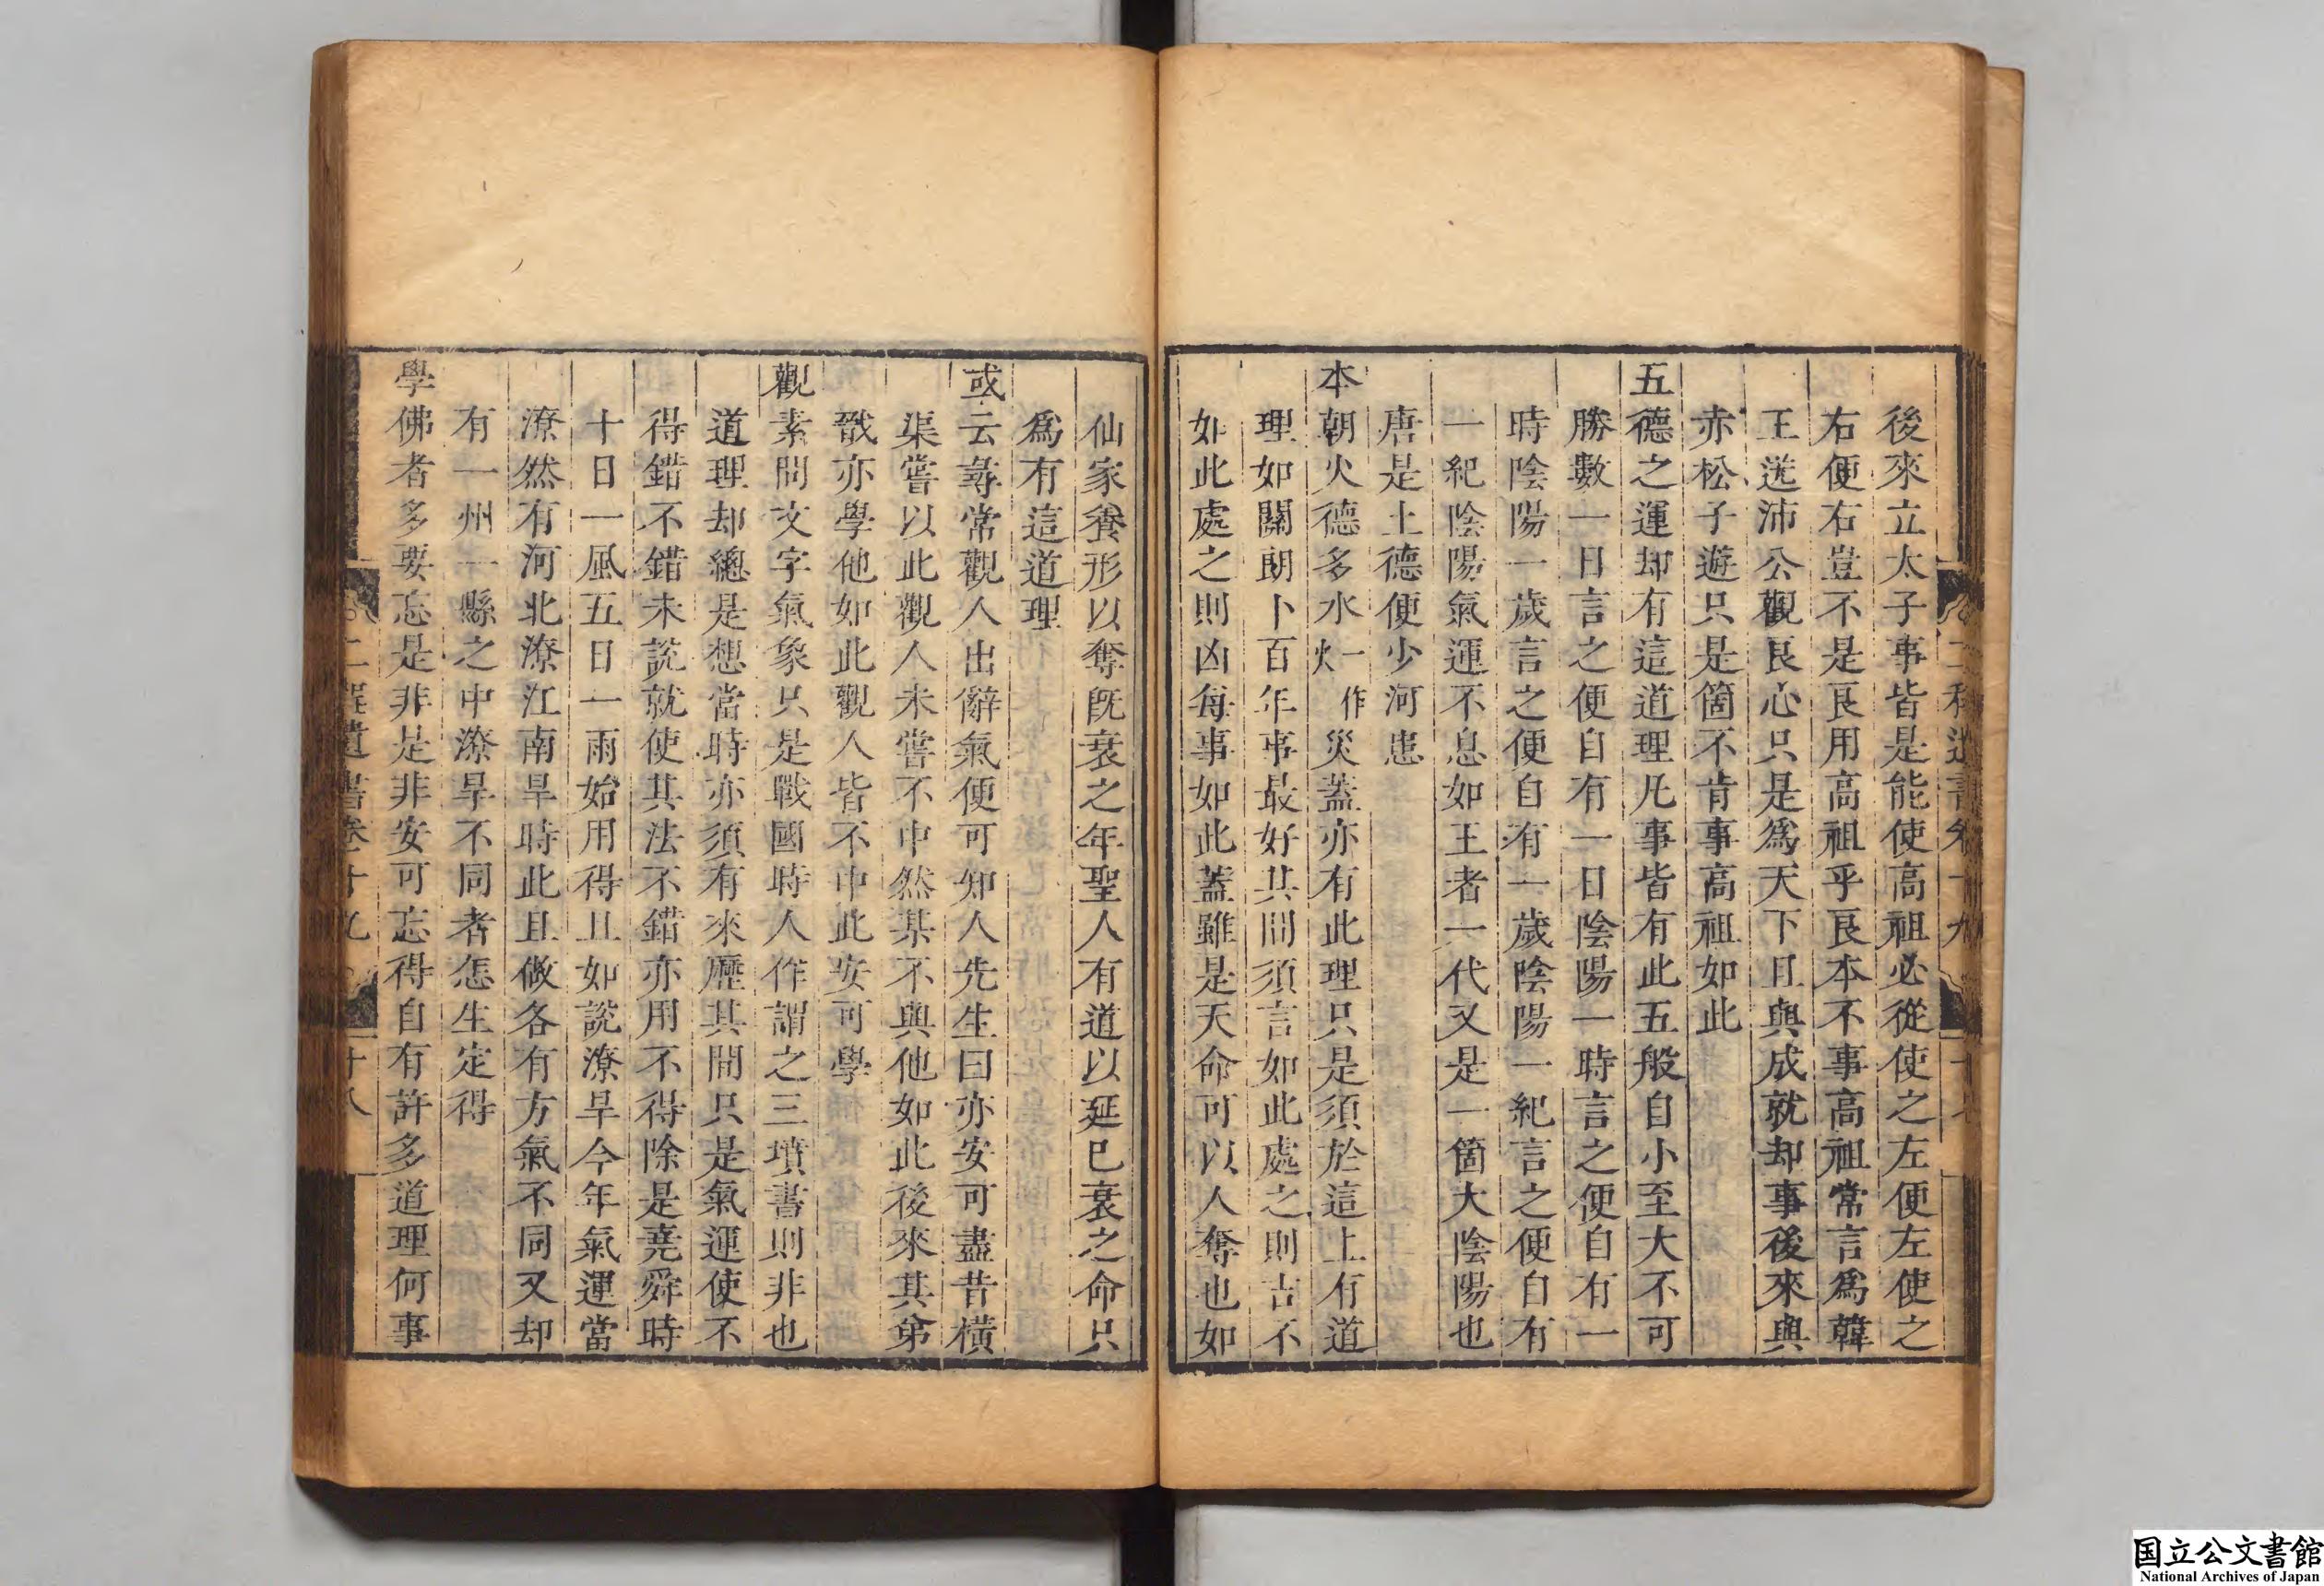 後來立太子事皆是能使高祖必從使之左便左使之
右便右豈不是良用高祖乎良本不事高祖常言爲韓
王送沛公觀良心只是爲天下且與成就却事後來與
赤松子遊只是箇不肯事高祖如此
五德之運却有這道理凡事皆有此五般自小至大不可
勝數一日言之便自有一日陰陽一時言之便自有一
時陰陽一歲言之便自有一歲陰陽一紀言之便自有
一紀陰陽氣運不息如王者一代又是一箇大陰陽也
唐是土德便少河患
本朝火德多水灾一作災蓋亦有此理只是須於這上有道
理如關朗卜百年事最好其間須言如此處之則吉不
如此處之則凶每事如此蓋雖是天命可以人奪也如
仙家養形以奪旣衰之年聖人有道以延已衰之命只
爲有這道理
或云尋常觀人出辭氣便可知人先生曰亦安可盡昔橫
渠嘗以此觀人未嘗不中然某不與他如此後來其弟
戩亦學他如此觀人皆不中此安可學
觀素問文字氣象只是戰國時人作謂之三墳書則非也
道理却總是想當時亦須有來歷其間只是氣運使不
得錯不錯未說就使其法不錯亦用不得除是堯舜時
十日一風五日一雨始用得且如說潦旱今年氣運當
潦然有河北潦江南旱時此且做各有方氣不同又却
有一州一縣之中潦旱不同者怎生定得
學佛者多要忘是非是非安可忘得自有許多道理何事
二程遺書卷十九
十八
国立公文書館
National Archives of Japan